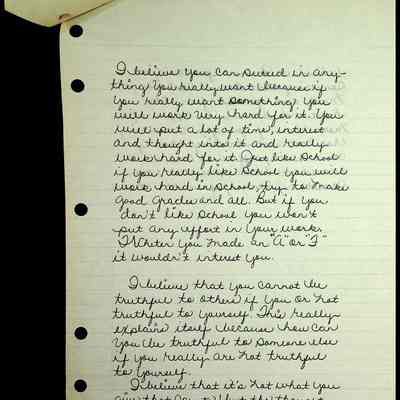 I believe you can suceed in any-
thing you really want because if
you really want something you
will work very hard for it. You
will put a lot of time, interest
and thought into it and really
work hard for it. Just like School
if you really like School you will
work hard in School, try to make
good Grades and all. But if you
don't like School you won't
put any effort in your work.
Wheter you made an "A" or "F"
it wouldn't interest you.
I believe that you cannot be
truthful to others if you or not
truthful to yourself. This really
explains itself because how can
you be truthful to someone else
if you really are not truthful
to yourself.
I believe that it's not what you